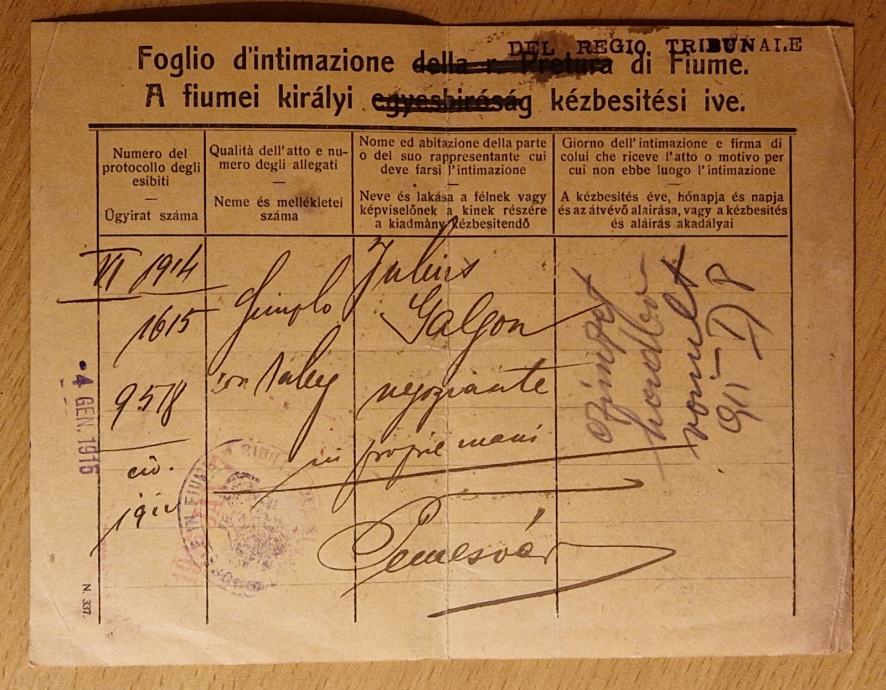 DEL REGIO TRIBUNALE
Foglio d'intimazione della r. Pretura di Fiume.
A fiumei királyi egyesbiróság kézbesitési ive.
Numero del
protocollo degli
esibiti
Ügyirat száma
Qualità dell'atto e nu-
mero degli allegati
Neme és mellékletei
száma
Nome ed abitazione della parte
o del suo rappresentante cui
deve farsi l'intimazione
Neve és lakása a félnek vagy
képviselőnek a kinek részére
a kiadmány kézbesitendő
Giorno dell'intimazione e firma di
colui che riceve l'atto o motivo per
cui non ebbe luogo l'intimazione
A kézbesités éve, hónapja és napja
és az átvévő aláirása, vagy a kézbesités
és aláirás akadályai
VI 1914
1615
9578
civ.
Julius
Galgon
negoziante
in proprie mani
Temesvár
czimzett
hordbo
vonult
4 GEN. 1915
N. 337.